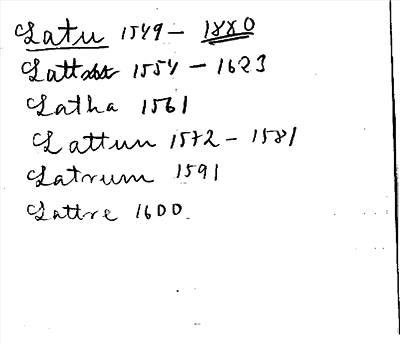 Latu 1549 - 1880
1554 - 1623
Latha 1561
Lattun 1572 - 1581
Latrum 1591
Lattre 1600